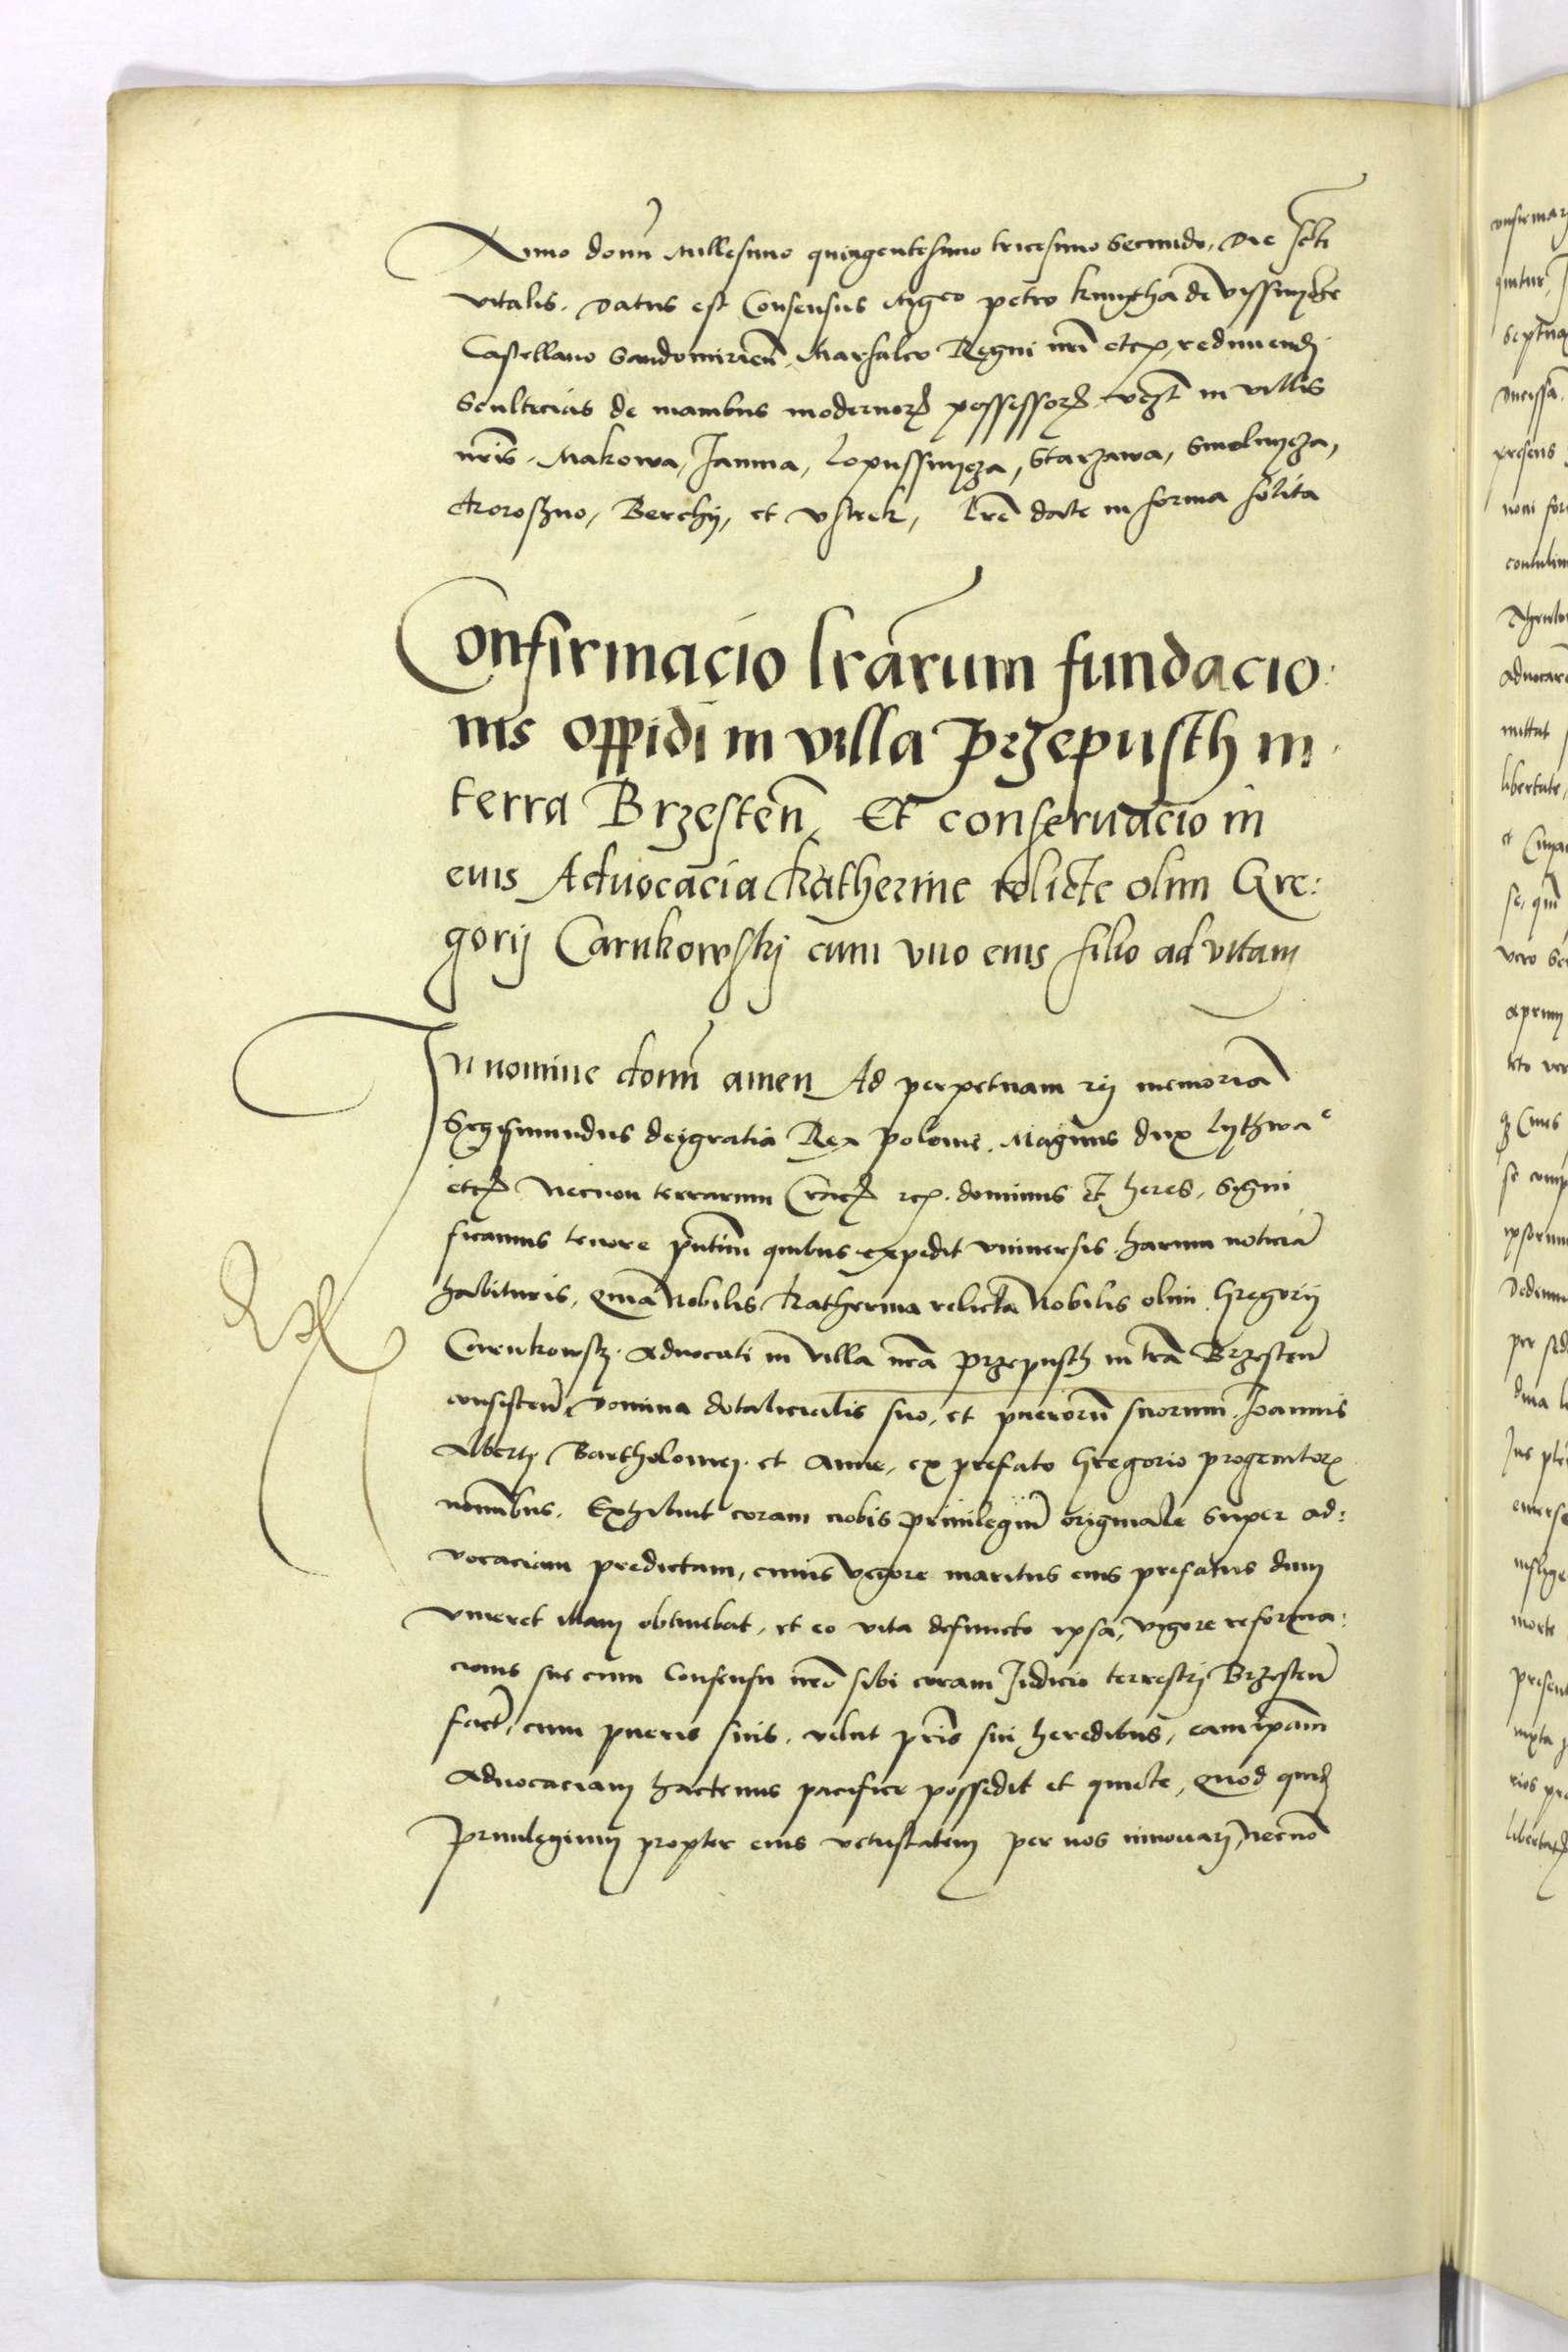 Anno domi Millesimo quingentesimo tricesimo Secundo, Die scti
vitalis. Datus est Consensus Mgco petro kmytha de vyssnycze
Castellano Sandomirien, Marsalco Regni nri etc, redimendi
Scultecias de manibus modernor possessor, in villis
nris. Makowa, Janina, Lopussnycza, Starzawa, Smelnycza,
Korosthno, Berehy, et vstrek, lre date in forma solita
Confirmacio lrarum fundacio:
nis oppidi in villa Przepusth in
terra Brzesten, Et conservacio in
eius Advocacia Katherine relicte olim Gre:
gorij Carnkowskj cum vno eius filio ad vitam
In nomine domi amen Ad perpetuam rei memoria
Sigismundus dei gratia Rex polonie. Magnus dux Lythwae
etc Necnon terrarum Crac etc. dominus et heres, Signi
ficamus tenore pntim quibus expedit vniversis harum noticia
habituris, quia Nobilis Katherina relicta Nobilis olim Gregorij
Carnkowskj. advocati in villa nra przepusth in tra Brzesten
consisten, domina dotalicialis suo, et puerorum suorum, Joannis
Alberti Bartholomei et Anne, ex prefato Gregorio progenitor
nominibus. Exhibuit coram nobis privilegium originale super ad:
vocaciam predictam, cuius vigore maritus eius prefatus dum
viveret illam obtinebat, et eo vita defuncto ipsa, vigore reforma:
cionis sue cum Consensu nro sibi coram Judicio terrestrj Brzesten
fact, cum pueris suis, velut pris sui heredibus, eam ipam
advocaciam hactenus pacifice possedit et quiete, Quod quid
Privilegium propter eius vetustatem per nos innovari, necno